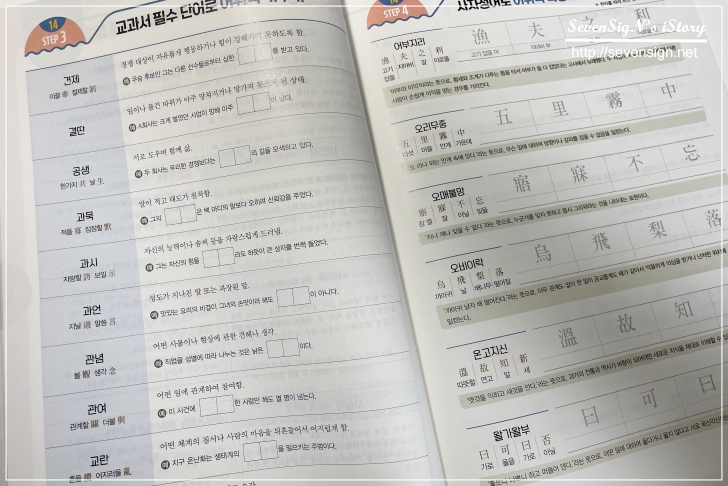 14
STEP 3
교과서 필수 단어로
견제
이끌 牽 절제할 制
경쟁 대상이 자유롭게 행동하거나 힘이 강해지지 못하도록 함.
예 우승 후보인 그는 다른 선수들로부터 심한 를 받고 있다.
결딴
일이나 물건 따위가 아주 망치거나 망가져 못쓰게 된 상태.
예 A회사는 크게 벌였던 사업이 망해 아주 이 났다.
공생
한가지 共 날 生
서로 도우며 함께 삶.
예 두 회사는 무리한 경쟁보다는 의 길을 모색하고 있다.
과묵
적을 寡 잠잠할 默
말이 적고 태도가 침착함.
예 그의 은 백 마디의 말보다 오히려 신뢰감을 주었다.
과시
자랑할 誇 보일 示
자신의 능력이나 솜씨 등을 자랑스럽게 드러냄.
예 그는 자신의 힘을 라도 하듯이 큰 상자를 번쩍 들었다.
과언
지날 過 말씀 言
정도가 지나친 말 또는 과장된 말.
예 맛있는 요리의 비결이 그녀의 손맛이라 해도 이 아니다.
관념
볼 觀 생각 念
어떤 사물이나 현상에 관한 견해나 생각.
예 직업을 성별에 따라 나누는 것은 낡은 이다.
관여
관계할 關 더불 與
어떤 일에 관계하여 참여함.
예 이 사건에 한 사람만 해도 열 명이 넘는다.
교란
흔들 攪 어지러울 亂
어떤 체계의 질서나 사람의 마음을 뒤흔들어서 어지럽게 함.
예 지구 온난화는 생태계의 을 일으키는 주범이다.
STEP 4
사자성어로
SevenSign's iStory
http://sevensign.net
어부지리
漁 夫 之 利
고기 잡을 지아비 의 이로울
漁 夫 之 利
고기 잡을 어 지아비 부
오리무중
五 里 霧 中
다섯 마을 안개 가운데
五 里 霧 中
오매불망
寤 寐 不 忘
잠 깰 잘 아닐 잊을
寤 寐 不 忘
오비이락
烏 飛 梨 落
까마귀 날 배나무 떨어질
烏 飛 梨 落
온고지신
溫 故 知 新
따뜻할 연고 알 새
溫 故 知
왈가왈부
曰 可 曰 否
가로 옳을 가로 아닐
曰 可 曰